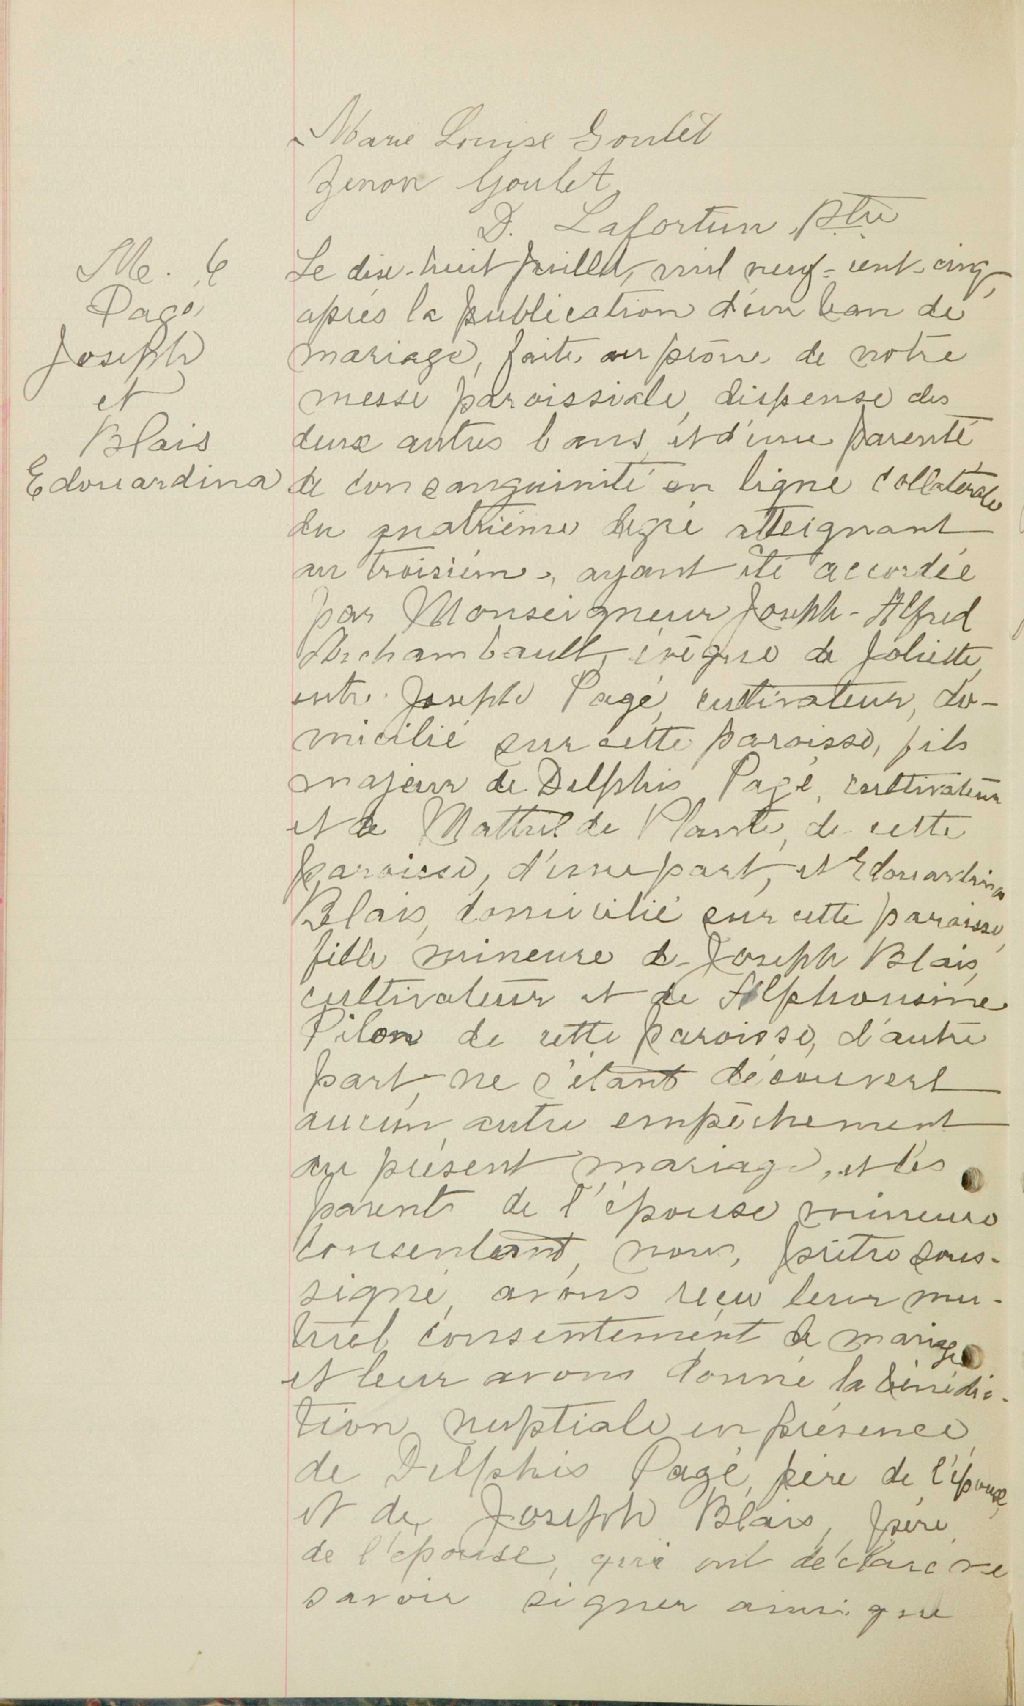 Marie Louise Goulet
Zenon Goulet
D. Lafortun, Ptre
M. 6
Pagé
Joseph
et
Blais
Edouardina
Le dix-huit Juillet, mil neuf-cent-cinq,
après la publication d'un ban de
mariage, faite au prône de notre
messe paroissiale, dispense des
deux autres bans, et d'une parenté
de consanguinité en ligne collatérale
du quatrième degré atteignant
au troisième, ayant été accordée
par Monseigneur Joseph-Alfred
Archambault, évêque de Joliette,
entre Joseph Pagé, cultivateur, do-
micilié sur cette paroisse, fils
majeur de Delphis Pagé, cultivateur
et de Mathilde Plante, de cette
paroisse, d'une part, et Edouardina
Blais, domicilié sur cette paroisse,
fille mineure de Joseph Blais,
cultivateur et de Alphonsine
Pilon de cette paroisse, d'autre
part, ne s'étant découvert
aucun autre empêchement
au présent mariage, et les
parents de l'épouse mineure
consentant, nous, prêtre sous-
signé, avons reçu leur mu-
tuel consentement de mariage
et leur avons donné la bénédic-
tion nuptiale en présence
de Delphis Pagé, père de l'époux,
et de Joseph Blais, père
de l'épouse, qui ont déclaré ne
savoir signer ainsi que